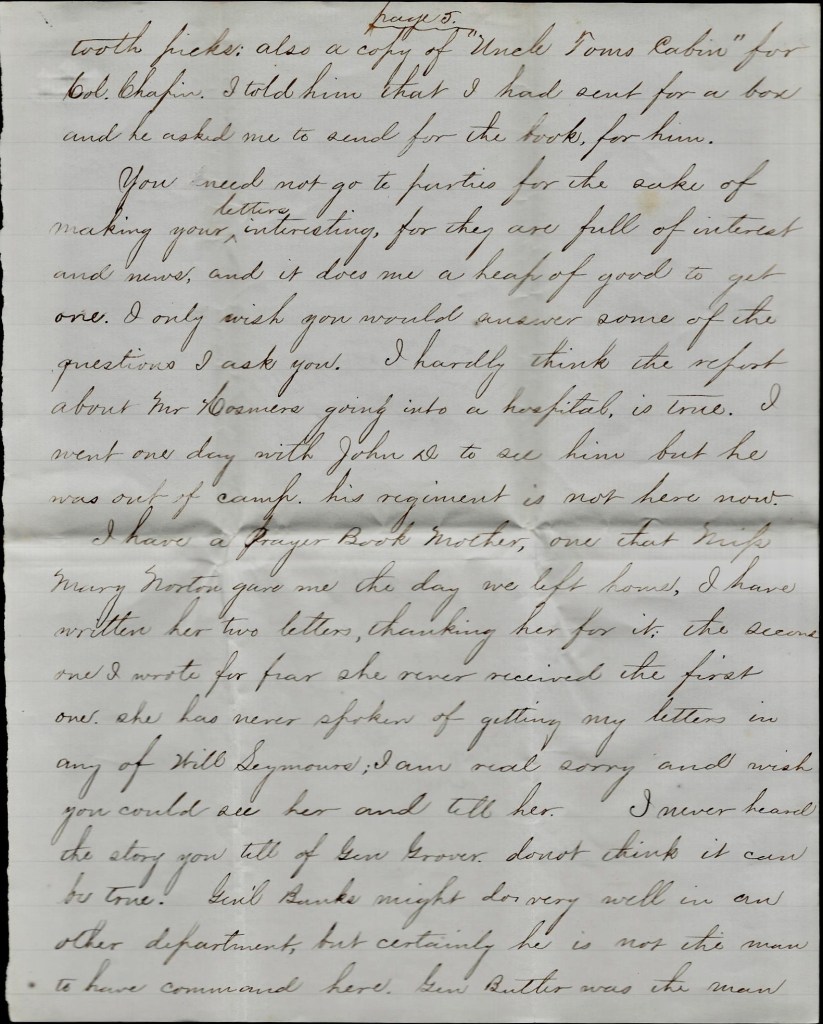 page 5.
tooth picks: also a copy of "Uncle Toms Cabin" for
Col. Chapin. I told him that I had sent for a box
and he asked me to send for the book, for him.
You need not go to parties for the sake of
letters
making your ^ interesting, for they are full of interest
and news, and it does me a heap of good to get
one. I only wish you would answer some of the
questions I ask you. I hardly think the report
about Mr Hosmers going into a hospital, is true. I
went one day with John D to see him but he
was out of camp. his regiment is not here now.
I have a Prayer Book Mother, one that Miss
Mary Norton gave me the day we left home, I have
written her two letters, thanking her for it; the second
one I wrote for fear she never received the first
one. she has never spoken of getting my letters in
any of Will Seymours; I am real sorry and wish
you could see her and tell her. I never heard
the story you tell of Gen Grover. do not think it can
be true. Gen'l Banks might do very well in an
other department, but certainly he is not the man
to have command here. Gen Butler was the man